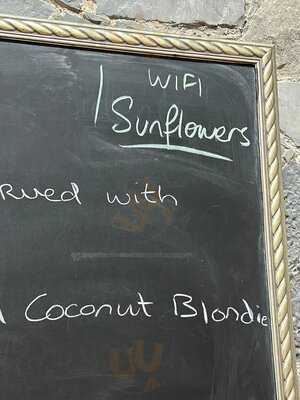 WIFI
Sunflowers
rved with
Coconut Blondie